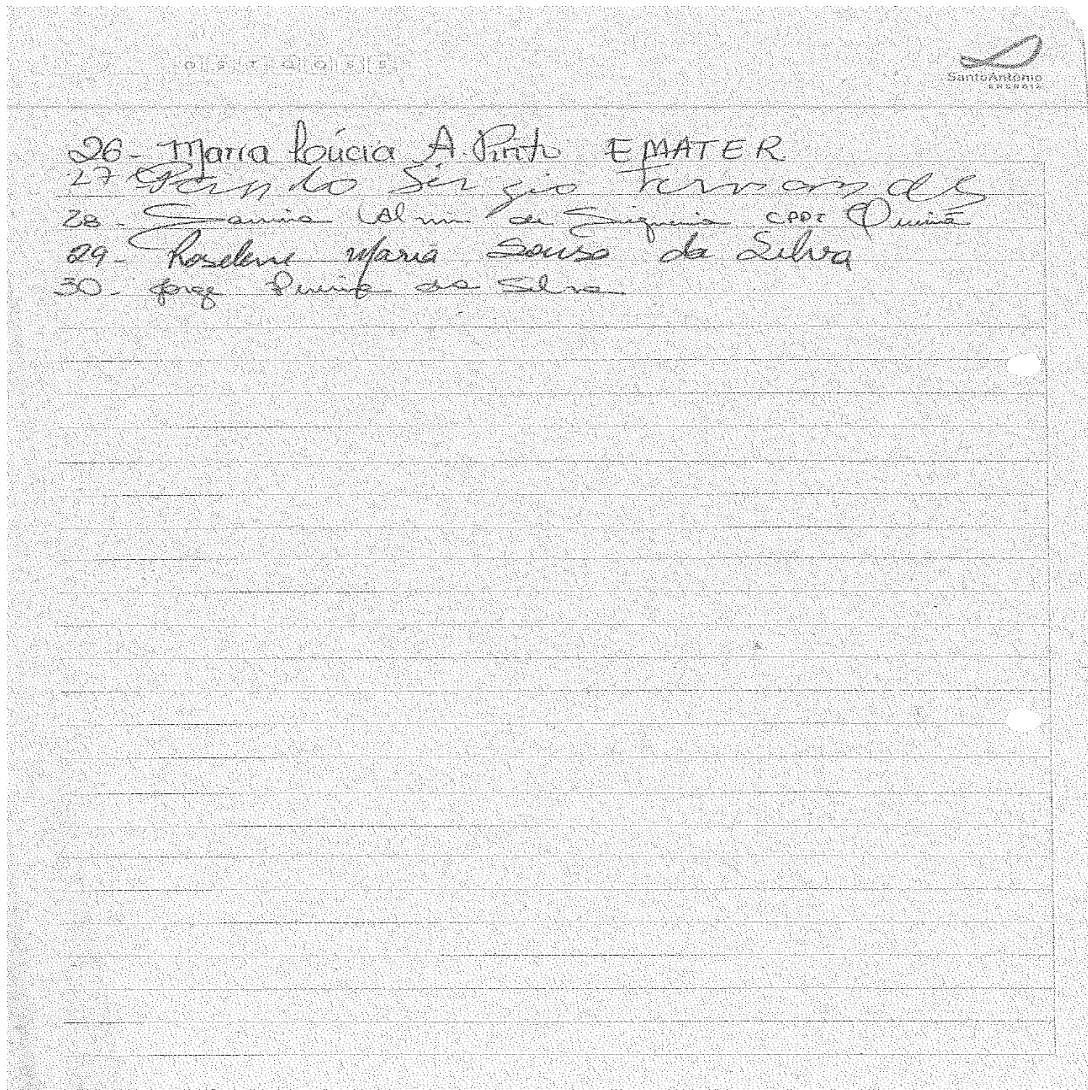 D S T Q Q S S
SantoAntônio
ENERGIA
26- Maria Lúcia A. Pinto EMATER
27 Sérgio Fernandes
28- de Siqueira CPPT Cuniã
29- Roselene Maria Souza da Silva
30- Jorge Pereira da Silva